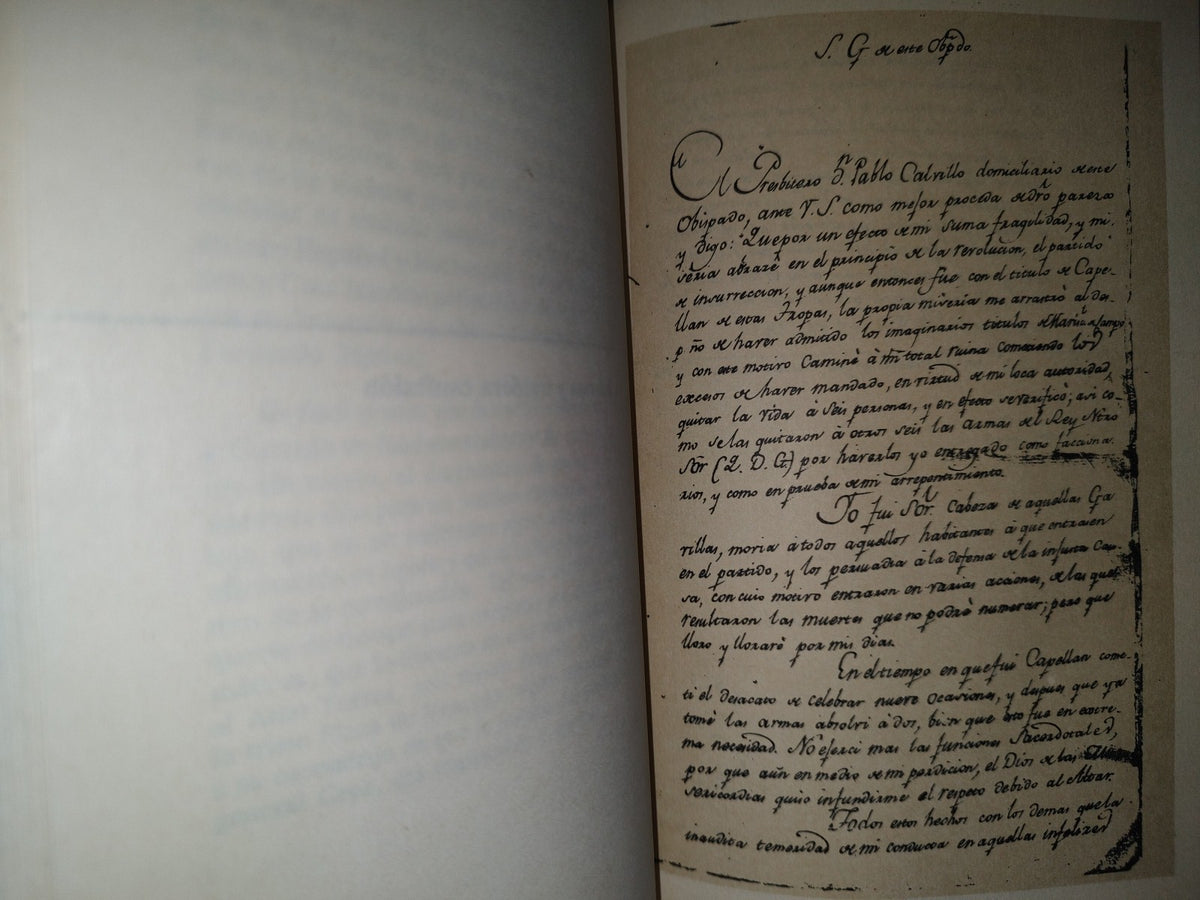 S. G. de este Obpdo.
El Presbitero Dn. Pablo Calvillo domiciliario de este
Obispado, ante V. S. como mejor proceda de dro parezco
y Digo: Que por un efecto de mi suma fragilidad, y mi-
seria abrazè en el principio de la revolucion, el partido
de insurreccion, y aunque entonces fue con el titulo de Cape-
llan de estas Tropas, la propia miseria me arrastrò al des-
pño de haver admitido los imaginarios titulos de Maris. de Campo
y con este motivo Caminè à mi total ruina cometiendo los
excesos de haver mandado, en virtud de mi loca autoridad,
quitar la vida à seis personas, y en efecto se verificò; asi co-
mo se las quitaron à otros seis las armas del Rey Ntro
Sõr (Q. D. G.) por haverlos yo entregado como facciona-
rios, y como en prueba de mi arrepentimiento.
Yo fui Sõr. Cabeza de aquellas Ga
villas, movia à todos aquellos habitantes à que entrasen
en el partido, y los persuadia à la defensa de la injusta Cau-
sa, con cuio motivo entraron en varias acciones, de las que
resultaron las muertes que no podrè numerar; pero que
lloro y llorarè por mis dias.
En el tiempo en que fui Capellan come-
ti el desacato de celebrar nueve Ocasiones, y despues que ya
tomè las armas absolvi à dos, bien que esto fue en extre-
ma necesidad. No eserci mas las funciones Sacerdotales,
por que aun en medio de mi perdicion, el Dios de las
sericordias quiso infundirme el respeto debido al Altar.
Todos estos hechos con los demas que la
inaudita temeridad de mi conducta en aquellas infelices